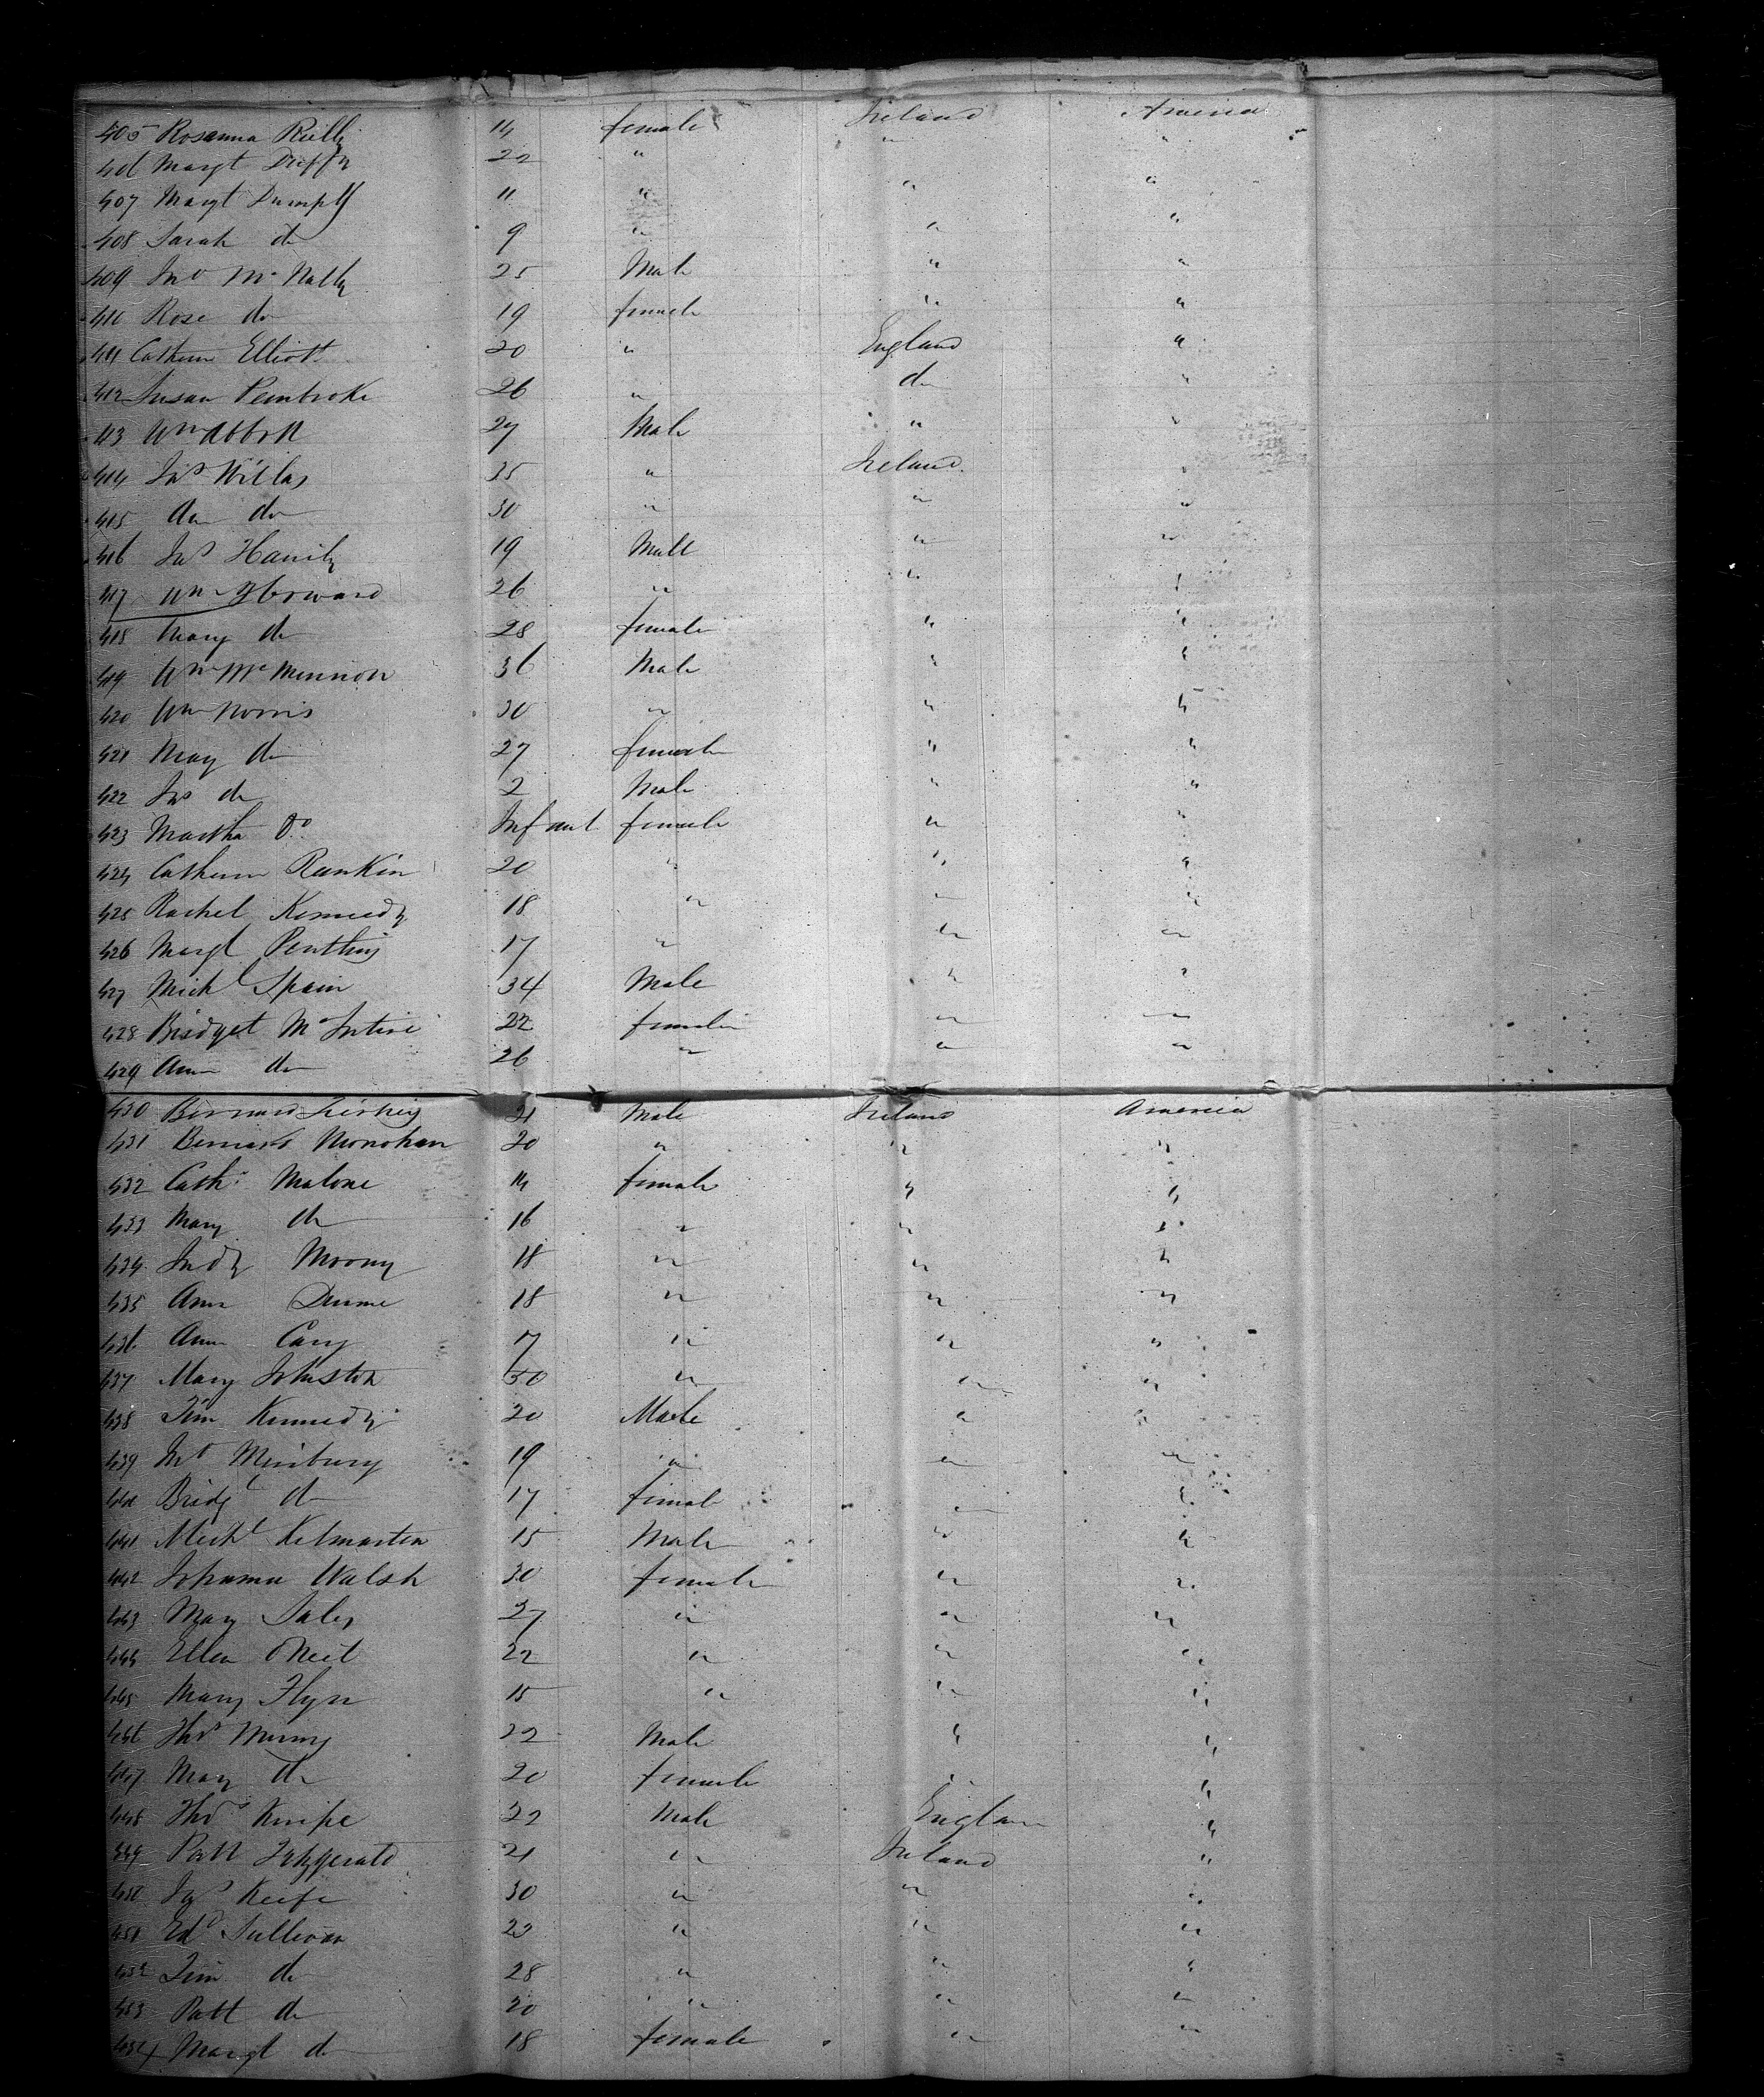 405 Rosanna Reilly 14 female Ireland America
406 Margt Duffy 22 " " "
407 Margt Dumphy 11 " " "
408 Sarah do 9 " " "
409 Jno McNally 25 Male " "
410 Rose do 19 female " "
411 Catherine Elliott 20 " England "
412 Susan Pembroke 26 " do "
413 Wm Abbott 27 Male " "
414 Jas 35 " Ireland "
415 Ann do 30 " " "
416 Jas 19 Male " "
417 Wm Howard 26 " " "
418 Mary do 28 female " "
419 Wm McMinnion 36 Male " "
420 Wm Norris 30 " " "
421 Mary do 27 female " "
422 Jas do 2 Male " "
423 Martha Do Infant female " "
424 Catherine Rankin 20 " " "
425 Rachel Kennedy 18 " " "
426 Margt 17 " " "
427 Michl Spain 34 Male " "
428 Bridget McIntire 22 female " "
429 Ann do 26 " " "
430 Bernard 21 Male Ireland America
431 Bernard Monohan 20 " " "
432 Cath Malone 14 female " "
433 Mary do 16 " " "
434 Judy Moony 18 " " "
435 Ann Dunne 18 " " "
436 Ann Cary 17 " " "
437 Mary Johnston 30 " " "
438 Tim Kennedy 20 Male " "
439 Jno 19 " " "
440 Bridgt do 17 female " "
441 Michl Kilmartin 15 Male " "
442 Johanna Walsh 30 female " "
443 Mary 27 " " "
444 Ellen ONeil 22 " " "
445 Mary Flyn 15 " " "
446 Thos 22 Male " "
447 Mary do 20 female " "
448 Thos 22 Male England "
449 Patt Fitzgerald 21 " Ireland "
450 Jas Keefe 30 " " "
451 Edd Sullivan 22 " " "
452 Tim do 28 " " "
453 Patt do 20 " " "
454 Margt do 18 female " "